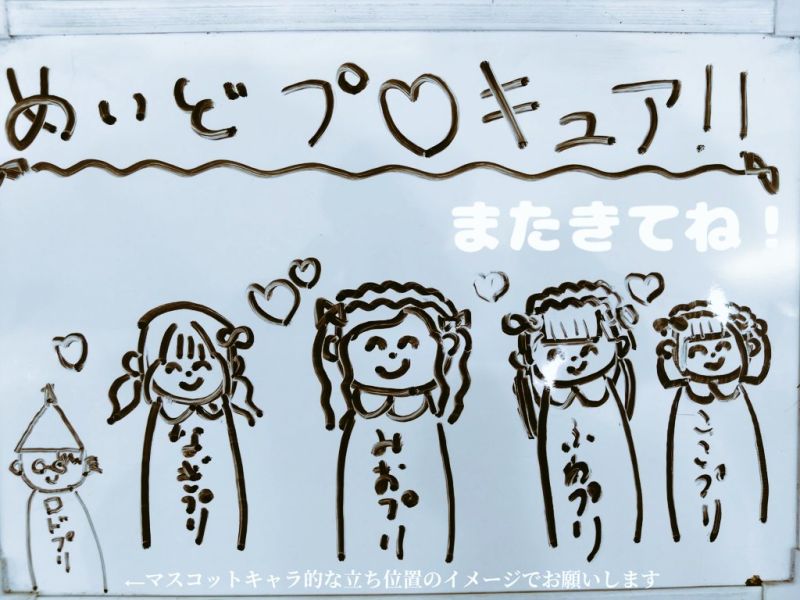 めいどプ♡キュア!!
またきてね！
なぎプリ
みおプリ
ふわプリ
ここプリ
ロドプリ
←マスコットキャラ的な立ち位置のイメージでお願いします